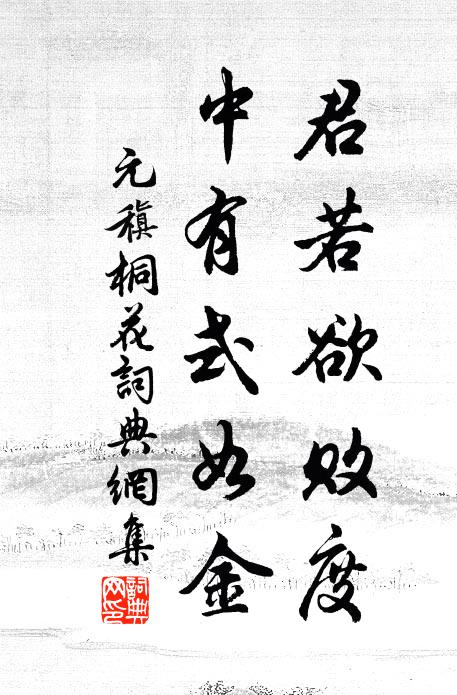 君若欲敗度
中有式如金
元稹桐花詞典網集
詞典网印